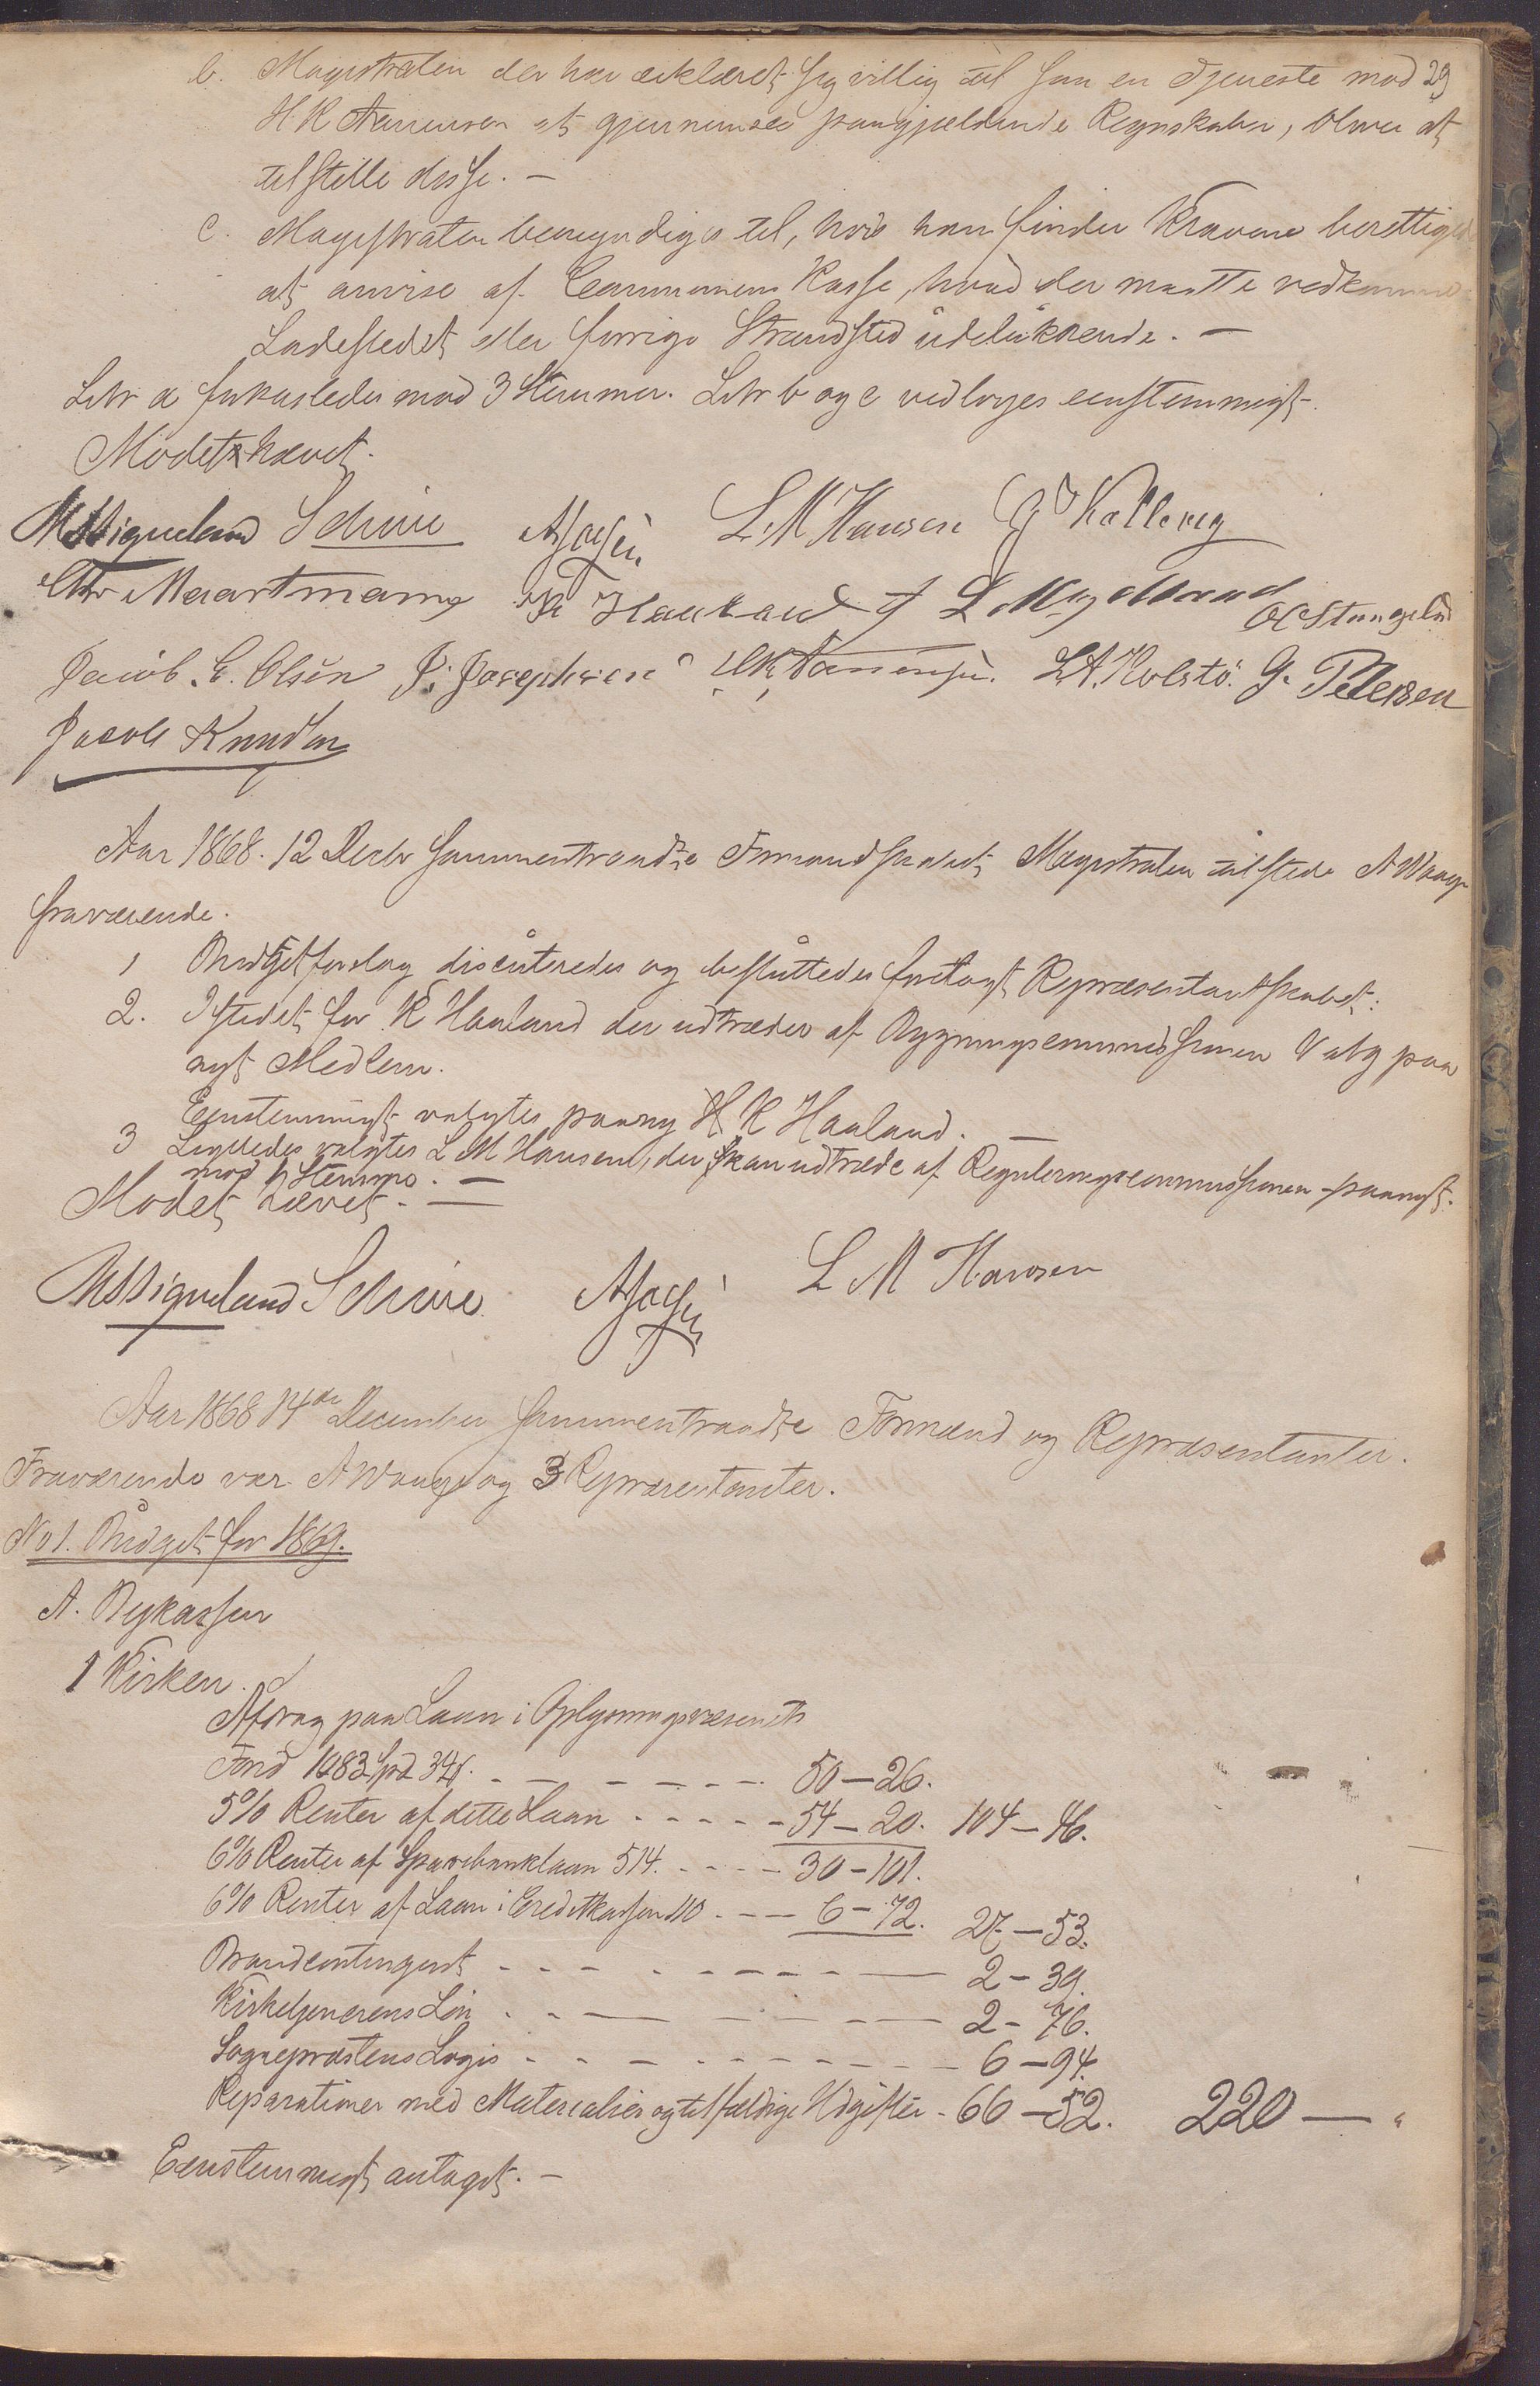 29
b. Magistraten der har erklæret sig villig til sam en Tjeneste mod
H. K. at gjennemsee paagjældende Regnskaber, bliver at
tilstille disse. —
c. Magistraten bemyndiges til, hvis han finder Kravene berettiget
at anvise af Communens Kasse, hvad der maatte vedkomme
Ladestedet eller forrige Strandsted udelukkende. —
Litr a forkastedes mod 3 Stemmer. Litr b og c vedtoges eenstemmigt.
Modet hævet.
Schive L. M Hansen Kallevig
Chr Maartmann Haaland
Jacob. E. Olsen J. Josephsen L. A. Kolstö. G. Petersen
Jacob Knudsen
Aar 1868. 12 Decbr sammentraadte Formandskabet, Magistraten tilstede A Waage
fraværende.
1 Budgetforslag discuteredes og besluttedes forelagt Repræsentantskabet.
2. Istedet for K Haaland der udtræder af Bygningscommissionen Valg paa
nyt Medlem.
Eenstemmigt valgtes paany K Haaland. —
3 Ligeledes valgtes L M Hansen, der skan udtræde af Reguleringscommissionen paanyt.
mod 1 Stemme. —
Modet hævet. —
Schive L M Hansen
Aar 1868 14de December sammentraadte Formænd og Repræsentanter.
Fraværende var A Waage og 3 Repræsentanter.
No 1. Budget for 1869.
A. Bykassen
1 Kirken.
Afdrag paa Laan i Oplysningsvæsenets
Fond 1083 Spd 34 s. - - - - - 50 — 26.
5% Renter af dette Laan - - - - - 54 — 20. 104 — 46.
6% Renter af Sparebanklaan 514. - - - - 30 — 101.
6% Renter af Laan i Creditkassen 110 - - - 6 — 72. 27 — 53.
Brandcontingent - - - - - - - - 2 — 39.
Kirketjenerens Løn - - - - - - 2 — 76.
Sognepræstens Logis - - - - - - - 6 — 94.
Reparationer med Materialier og tilfældige Udgifter - 66 — 52. 220 — "
Eenstemmigt antaget. —